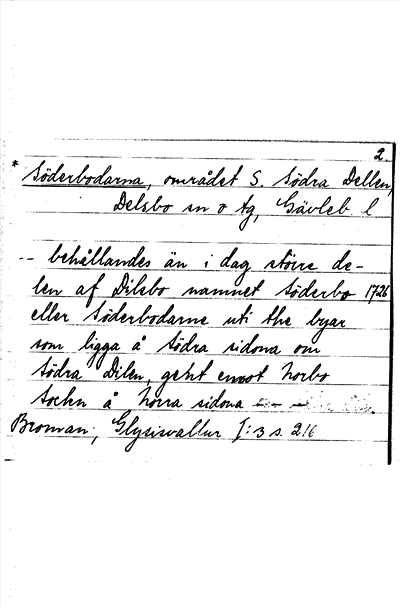 2.
* Söderbodarna, området S. Södra Dellen,
Delsbo sn o tg, Gävleb. l
-- behållandes än i dag större de-
len af Dilsbo namnet Söderbo 1726
eller Söderbodarne uti the byar
som ligga å Södra sidona om
Södra Dilen, gent emot Norbo
Sochn å Norra sidona -- --
Broman, Glysisvallur I: 3 s. 216